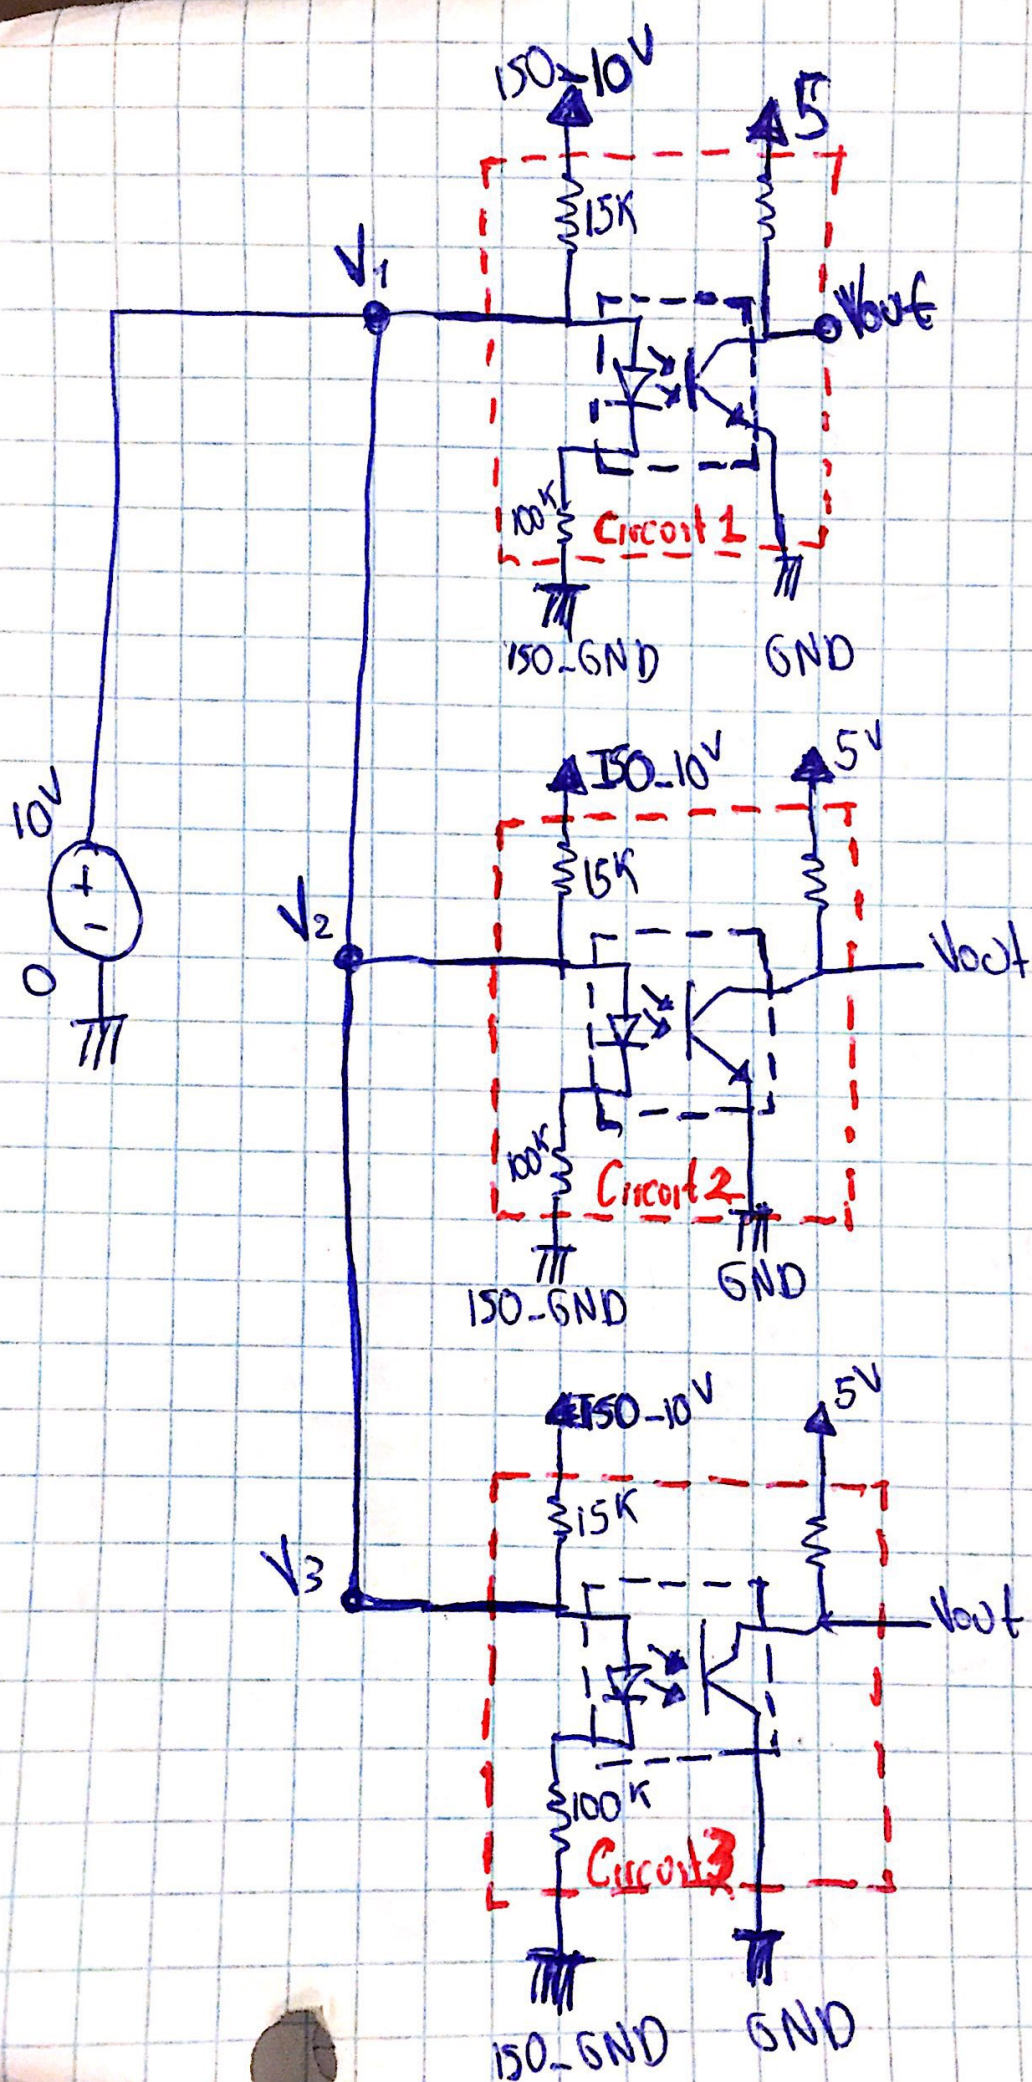 ISO-10V
5
15K
V1
Vout
100K
Circoit 1
ISO-GND
GND
10V
+
-
0
ISO-10V
5V
15K
V2
Vout
100K
Circoit 2
GND
ISO-GND
ISO-10V
5V
15K
V3
Vout
100K
Circoit 3
ISO-GND
GND